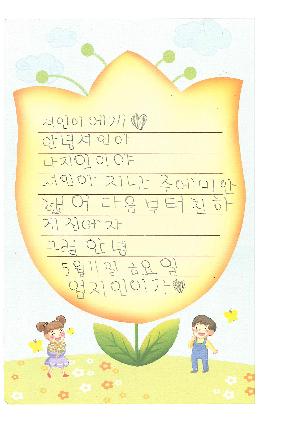 서인이에게♡
안녕서인아
나지인이야
서인아 지난 주에 미안
했어 다음부터 친하
게 지내자
그럼 안녕
5월 11일 금요일
엄지인이가♡